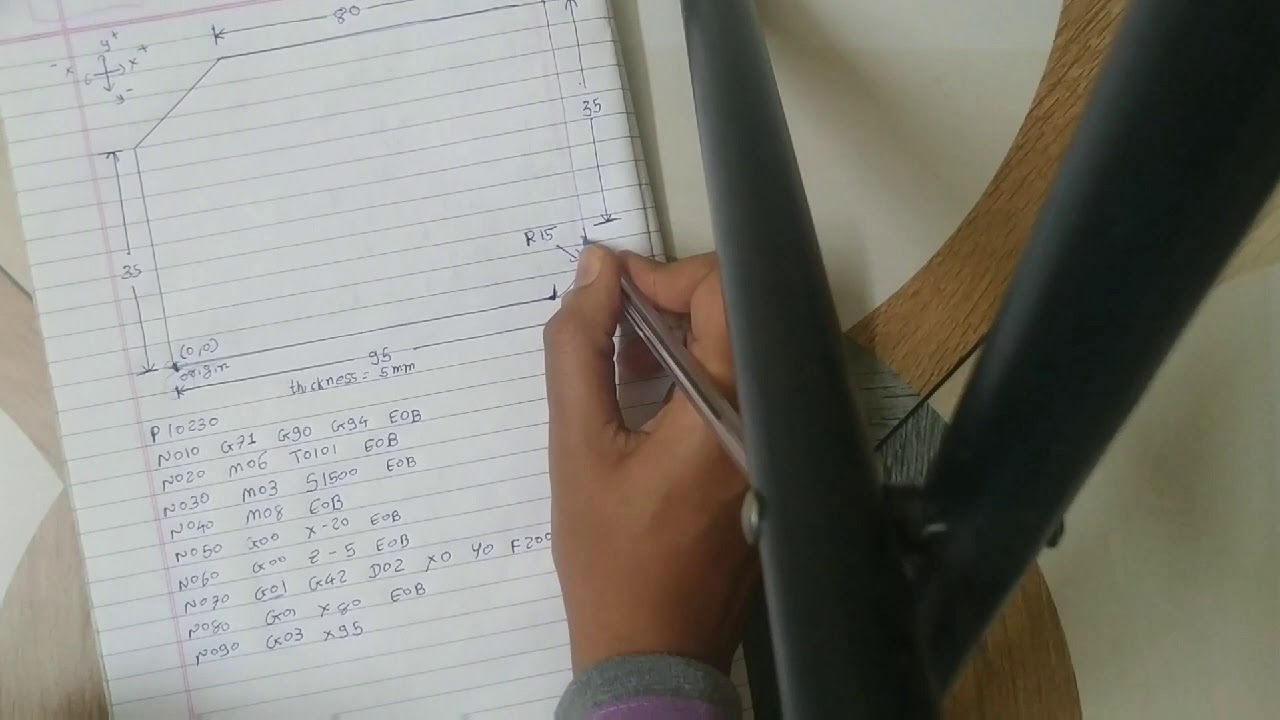 80
y+
-x x+
y-
35
R15
35
(0,0)
origin
95
thickness = 5mm
P10230
N010 G71 G90 G94 EOB
N020 M06 T0101 EOB
N030 M03 S1500 EOB
N040 M08 EOB
N050 G00 X-20 EOB
N060 G00 Z-5 EOB
N070 G01 G42 D02 X0 Y0 F200
N080 G01 X80 EOB
N090 G03 X95